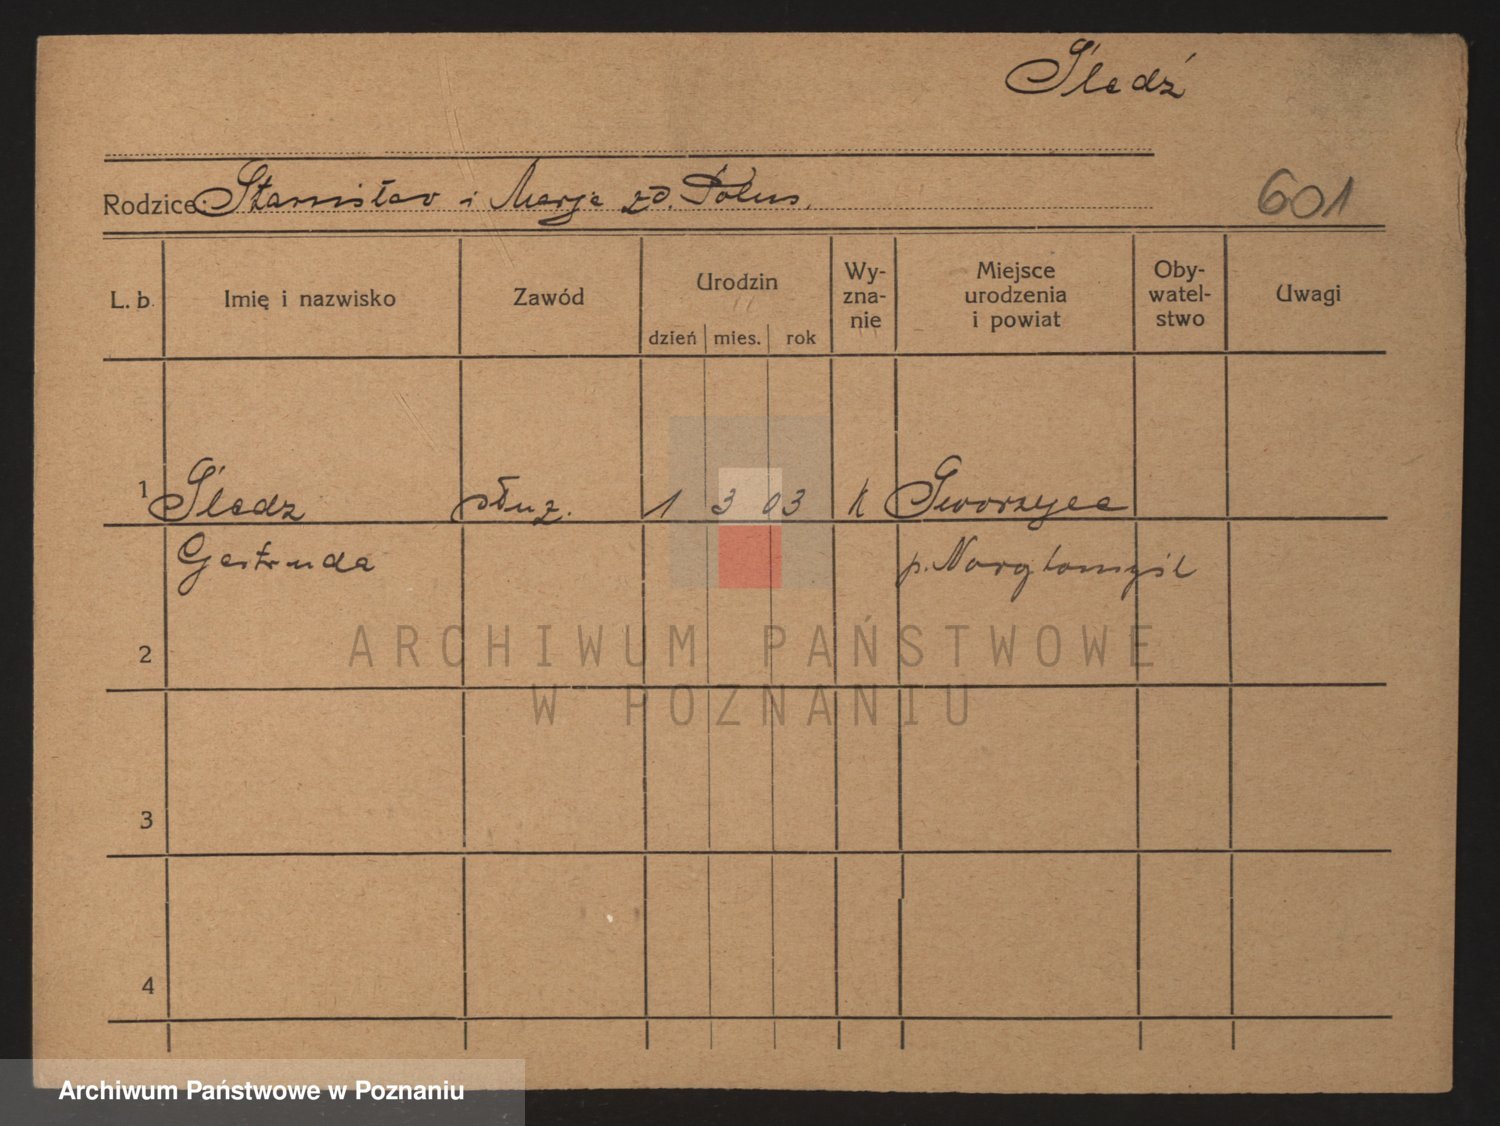 Śledź
Rodzice: Stanisław i Marja zd. Polus.
601
L. b.
Imię i nazwisko
Zawód
Urodzin
dzień mies. rok
Wy-
zna-
nie
Miejsce
urodzenia
i powiat
Oby-
watel-
stwo
Uwagi
1 Śledz służ. 1 3 03 k Sworzyce
Gertruda p. Nowytomyśl
2
3
4
ARCHIWUM PAŃSTWOWE
W POZNANIU
Archiwum Państwowe w Poznaniu